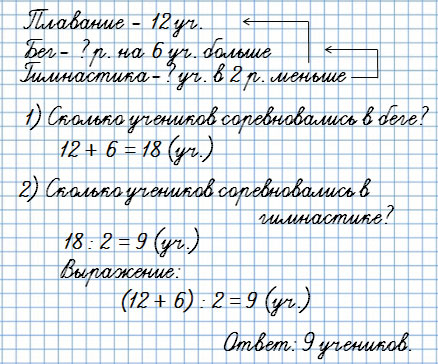 Плавание – 12 уч.
Бег – ? р. на 6 уч. больше
Гимнастика – ? уч. в 2 р. меньше
1) Сколько учеников соревновались в беге?
12 + 6 = 18 (уч.)
2) Сколько учеников соревновались в
гимнастике?
18 : 2 = 9 (уч.)
Выражение:
(12 + 6) : 2 = 9 (уч.)
Ответ: 9 учеников.